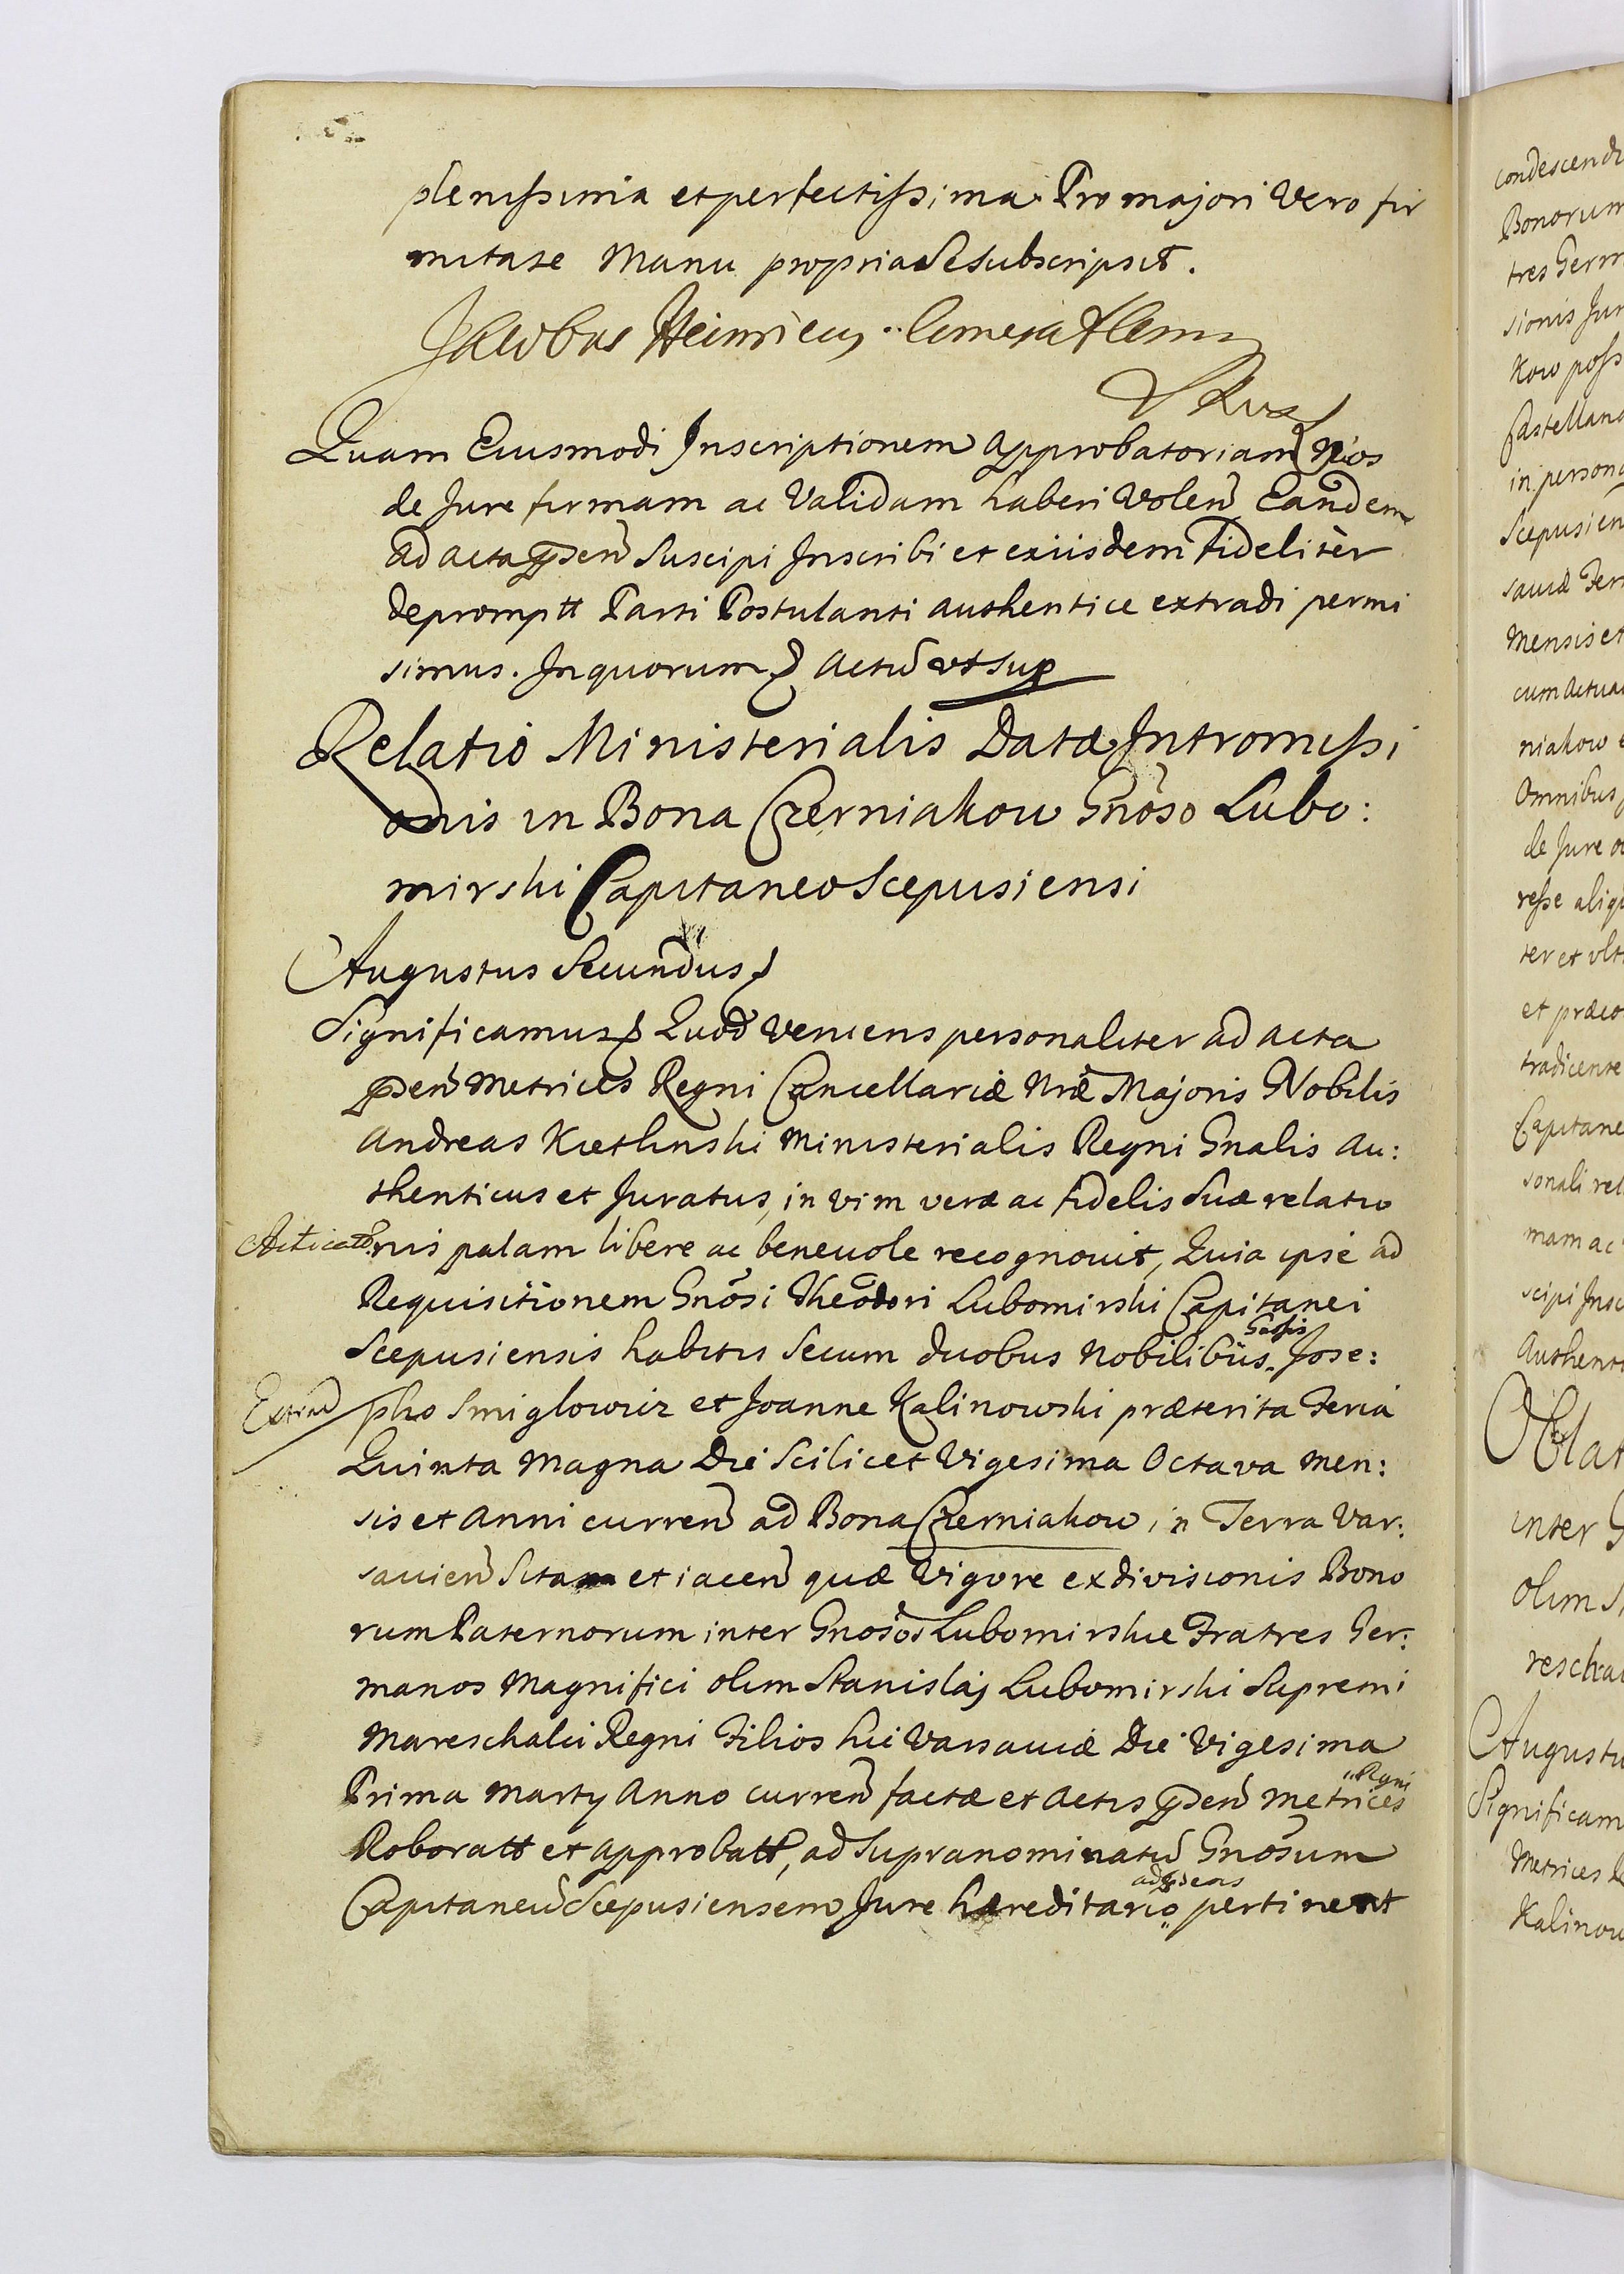 plenissima et perfectissima. Pro majori Vero fir
mitate Manu propria Se subscripsit.
Jacobus Heinricus
Quam Eiusmodi Inscriptionem Approbatoriam Nos
de Jure firmam ac Validam haberi Volen Eandem
ad acta pnsen Suscipi Inscribi et exiisdem Fideliter
depromptt Parti Postulanti authentice extradi permi
simus. In quorum Actu ut sup
Relatio Ministerialis Datæ Intromissi
onis in Bona Czerniakow Gnoso Lubo:
mirski Capitaneo Scepusiensi
Augustus Secundus
Significamus Quod Veniens personaliter ad acta
pnsen Metrices Regni Cancellariæ Nræ Majoris Nobilis
Andreas Kietlinski Ministerialis Regni Gnalis Au:
thenticus et Juratus, in vim veræ ac fidelis Suæ relatio
nis palam libere ac beneuole recognouit, Quia ipse ad
Requisitionem Gnosi Theodori Lubomirski Capitanei
Scepusiensis habitis Secum duobus Nobilibus Jose:
Extrad
pho Smiglowicz et Joanne Kalinowski præterita Feria
Quinta Magna Die Scilicet Vigesima Octava Men:
sis et Anni curren ad Bona Czerniakow in Terra Var:
sauien Sita et iacen quæ Vigore exdivisionis Bono
rum Paternorum inter Gnosos Lubomirskie Fratres Ger:
manos Magnifici olim Stanislaj Lubomirski Supremi
Mareschalci Regni Filios hic Varsauiæ Die Vigesima
Prima Martij Anno curren factæ et Actis pnsen Metrices
Regni
Roboratt et approbatt, ad Supranominatu Gnosum
Capitaneu Scepusiensem Jure hæreditario pertinent
condescend
Bonorum
tres Germ
sionis Jur
kow poss
Castellano
in persona
Scepusien
sauiæ Fer
Mensis et
cum Actua
niakow
Omnibus
de Jure
resse aliq
ter et ult
et præco
tradicente
Capitane
sonali rel
mam ac
scipi Insc
Authent
Oblat
inter G
olim S
rescha
Augustu
Significam
Metrices
Kalinow